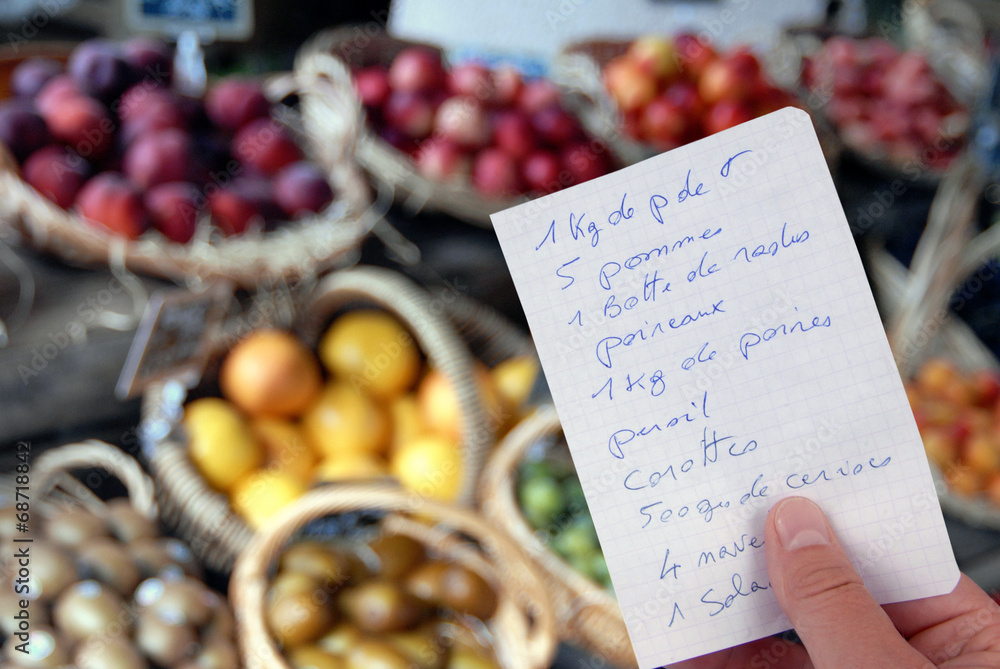 1 Kg de p de
5 pommes
1 Botte de radis
poireaux
1 Kg de poires
persil
carottes
500g de cerises
4 nave
1 Sala
68718842
Adobe Stock